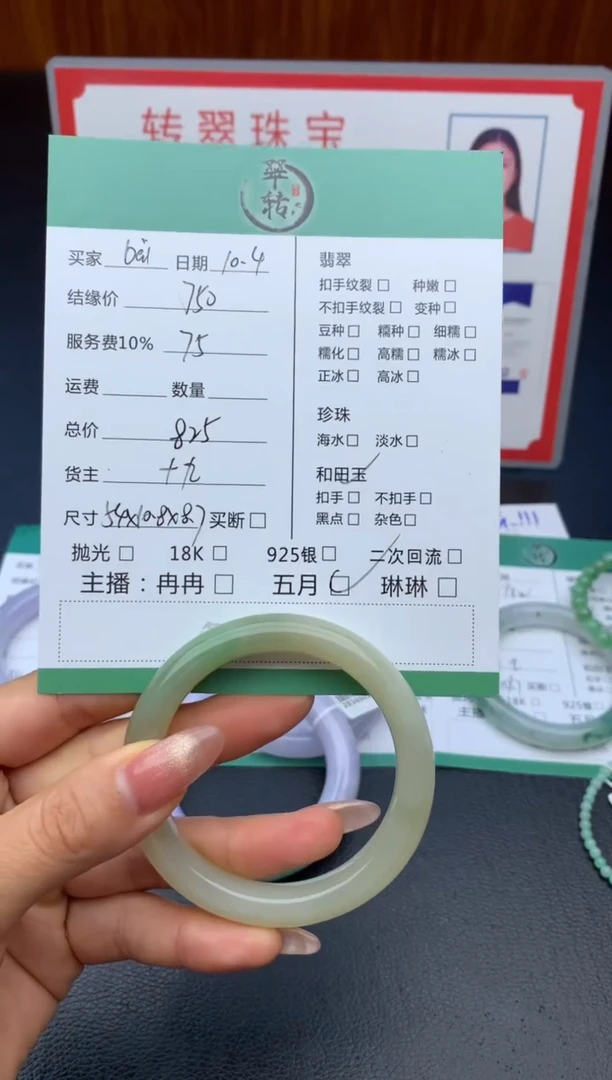 转翠珠宝
翠
转
买家 bai 日期 10-4
结缘价 750
服务费10% 75
运费 数量
总价 825
货主 十九
尺寸 54x10.8x8.7 买断□
翡翠
扣手纹裂□ 种嫩□
不扣手纹裂□ 变种□
豆种□ 糯种□ 细糯□
糯化□ 高糯□ 糯冰□
正冰□ 高冰□
珍珠
海水□ 淡水□
和田玉
扣手□ 不扣手□
黑点□ 杂色□
抛光□ 18K□ 925银□ 二次回流□
主播：冉冉□ 五月□ 琳琳□
18K□ 925银□
主播